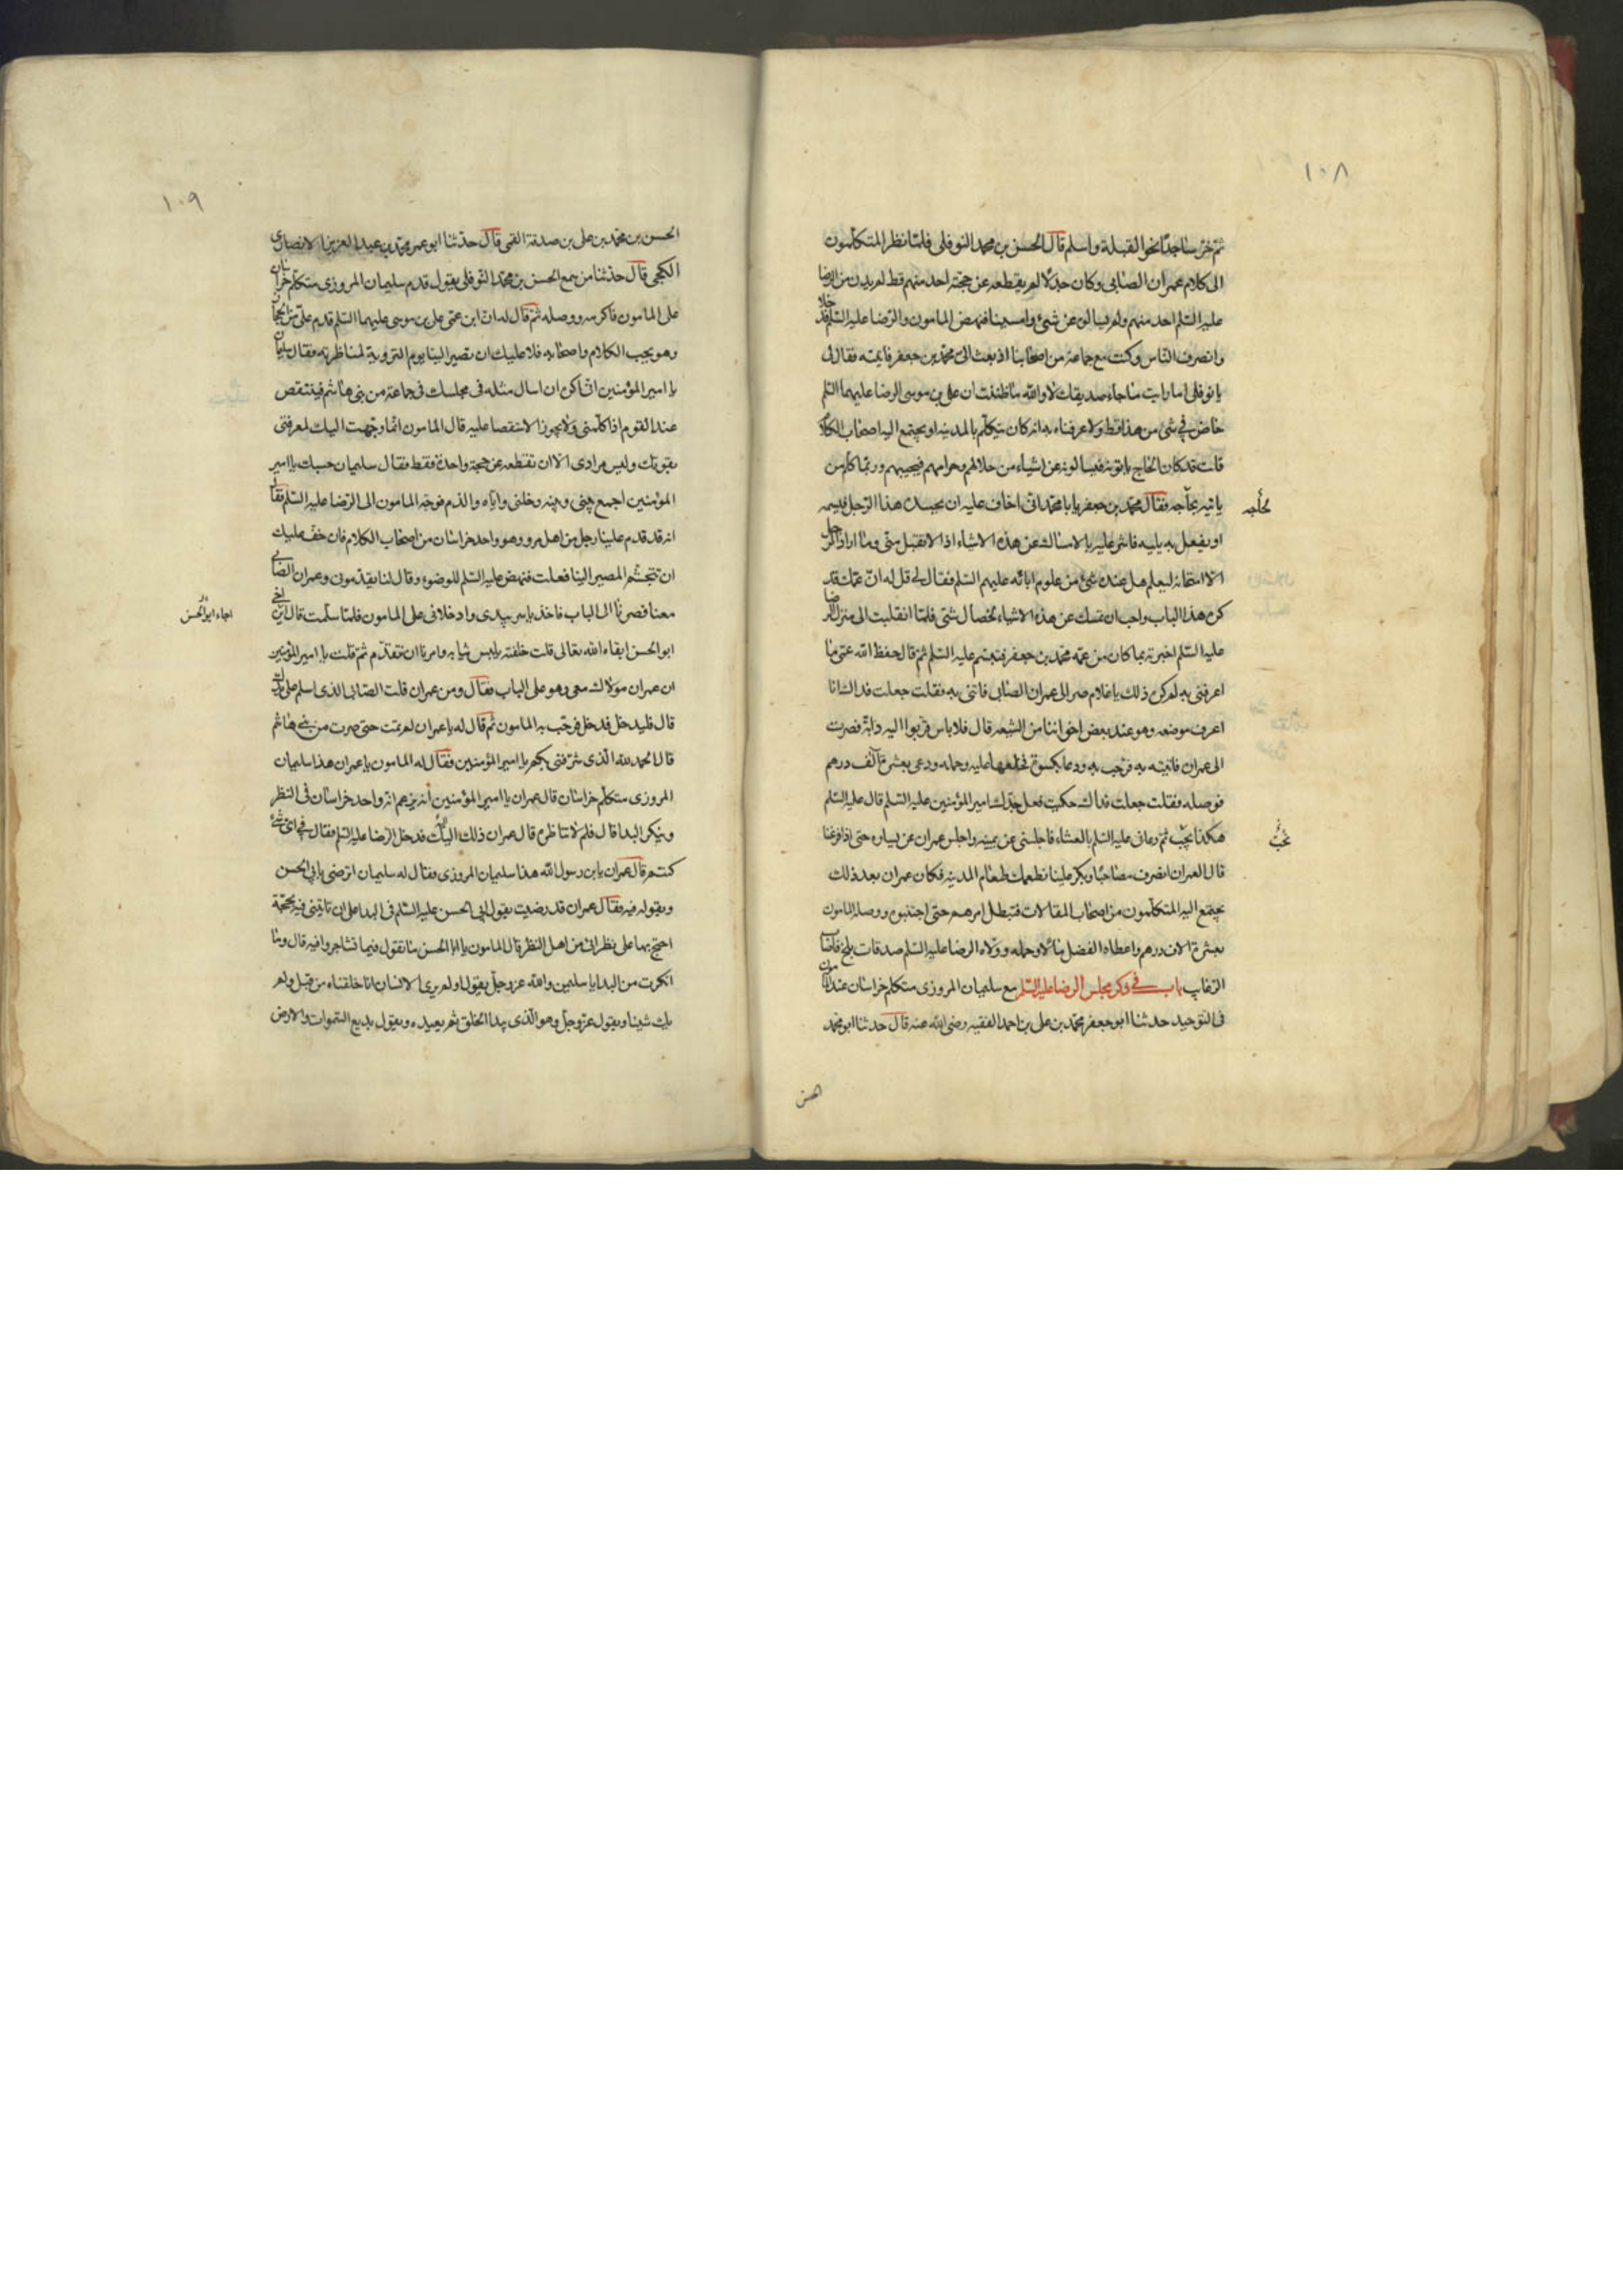 ١٠٨
ثم خر ساجدا نحو القبلة واسلم قال الحسن بن محمد النوفلى فلما نظر المتكلمون
الى كلام عمران الصابى وكان جدلا لم يقطعه عن حجته احد منهم قط لم يدن من الرضا
عليه السلم احد منهم ولم يسالوه عن شئ وامسينا فنهض المامون والرضا عليه السلم فدخلا
وانصرف الناس وكنت مع جماعة من اصحابنا اذ بعث الى محمد بن جعفر فاتيته فقال لى
يا نوفلى اما رايت ما جاء صديقك لا والله ما ظننت ان على بن موسى الرضا عليهما السلم
خاض فى شئ من هذا قط ولا عرفناه به انه كان يتكلم بالمدينه او يجتمع اليه اصحاب الكلام
قلت قد كان الحاج ياتونه فيسالونه عن اشياء من حلالهم وحرامهم فيجيبهم وربما كلم من
ياتيه بحاجه فقال محمد بن جعفر يا با محمد انى اخاف عليه ان يحسده هذا الرجل فيسمه
يحاجه
او يفعل به بليه فاشر عليه بالامساك عن هذه الاشياء اذا لا تقبل منى وما اراد الرجل
الا امتحانه ليعلم هل عنده شئ من علوم ابائه عليهم السلم فقال لى قل له ان عمك قد
كره هذا الباب واحب ان تمسك عن هذه الاشياء لخصال شتى فلما انقلبت الى منزل الرضا
عليه السلم اخبرته بما كان من عمه محمد بن جعفر فتبسم عليه السلم ثم قال حفظ الله عمى ما
اعرفنى به لم كره ذلك يا غلام صر الى عمران الصابى فاتنى به فقلت جعلت فداك انا
اعرف موضعه وهو عند بعض اخواننا من الشيعه قال فلا باس قربوا اليه دابة فصرت
الى عمران فاتيته به فرحب به ودعا بكسوة فخلعها عليه وحمله ودعى بعشرة آلف درهم
فوصله فقلت جعلت فداك حكيت فعل جدك امير المؤمنين عليه السلم قال عليه السلم
هكذا يجب ثم دعانى عليه السلم بالعشاء فاجلسنى عن يمينه واجلس عمران عن يساره حتى اذا فرغنا
نحب
قال لعمران انصرف مصاحبا وبكر علينا نطعمك طعام المدينه فكان عمران بعد ذلك
يجتمع اليه المتكلمون من اصحاب المقالات فتبطل امرهم حتى اجتنبوه ووصله المامون
بعشرة الاف درهم واعطاه الفضل مالا وحمله وولاه الرضا عليه السلم صدقات بلخ فاصاب
الرغايب باب فى ذكر مجلس الرضا عليه السلم مع سليمان المروزى متكلم خراسان عند المامون
فى التوحيد حدثنا ابو جعفر محمد بن على بن احمد الفقيه رضى الله عنه قال حدثنا ابو محمد
الحسن
١٠٩
الحسن بن محمد بن على بن صدقة القمى قال حدثنا ابو عمر محمد بن عبد العزيز الانصارى
الكجى قال حدثنا من سمع الحسن بن محمد النوفلى يقول قدم سليمان المروزى متكلم خراسان
على المامون فاكرمه ووصله ثم قال له ان ابن عمى على بن موسى عليهما السلم قدم على من الحجاز
وهو يحب الكلام واصحابه فلا عليك ان تصير الينا يوم التروية لمناظرته فقال سليمان
يا امير المؤمنين انى اكره ان اسال مثله فى مجلسك فى جماعة من بنى هاشم فينتقص
عند القوم اذا كلمنى ولا يجوز الاستقصا عليه قال المامون انما وجهت اليك لمعرفتى
بقوتك وليس مرادى الا ان تقطعه عن حجة واحدة فقط فقال سليمان حسبك يا امير
المؤمنين اجمع بينى وبينه وخلنى واياه والذم فوجه المامون الى الرضا عليه السلم فقال
انه قد قدم علينا رجل من اهل مرو وهو واحد خراسان من اصحاب الكلام فان خف عليك
ان تتجشم المصير الينا فعلت فنهض عليه السلم للوضوء وقال لنا تقدمونى وعمران الصابى
معنا فصرنا الى الباب فاخذ ياسر بيدى وادخلانى على المامون فلما سلمت قال اين اخى
اجاء ابو الحسن
ابو الحسن ابقاه الله تعالى قلت خلفته يلبس ثيابه وامرنا ان نتقدم ثم قلت يا امير المؤمنين
ان عمران مولاك معى وهو على الباب فقال ومن عمران قلت الصابى الذى اسلم على يدك
قال فليدخل فدخل فرحب به المامون ثم قال له يا عمران لم تمت حتى صرت من بنى هاشم
قال الحمد لله الذى شرفنى بكم يا امير المؤمنين فقال له المامون يا عمران هذا سليمان
المروزى متكلم خراسان قال عمران يا امير المؤمنين انه يزعم انه واحد خراسان فى النظر
وينكر البدا قال فلم لا تناظره قال عمران ذلك اليك فدخل الرضا عليه السلم فقال فى اى شئ
كنتم قال عمران يابن رسول الله هذا سليمان المروزى فقال له سليمان اترضى بابى الحسن
وبقوله فيه فقال عمران قد رضيت بقول ابى الحسن عليه السلم فى البدا على ان تاتينى فيه بحجة
احتج بها على نظرائى من اهل النظر قال المامون يا ابا الحسن ما تقول فيما تشاجروا فيه قال وما
انكرت من البدا يا سليمن والله عز وجل يقول اولم يرى الانسان انا خلقناه من قبل ولم
يك شيئا ويقول عز وجل وهو الذى يبدا الخلق ثم يعيده ويقول بديع السموات والارض